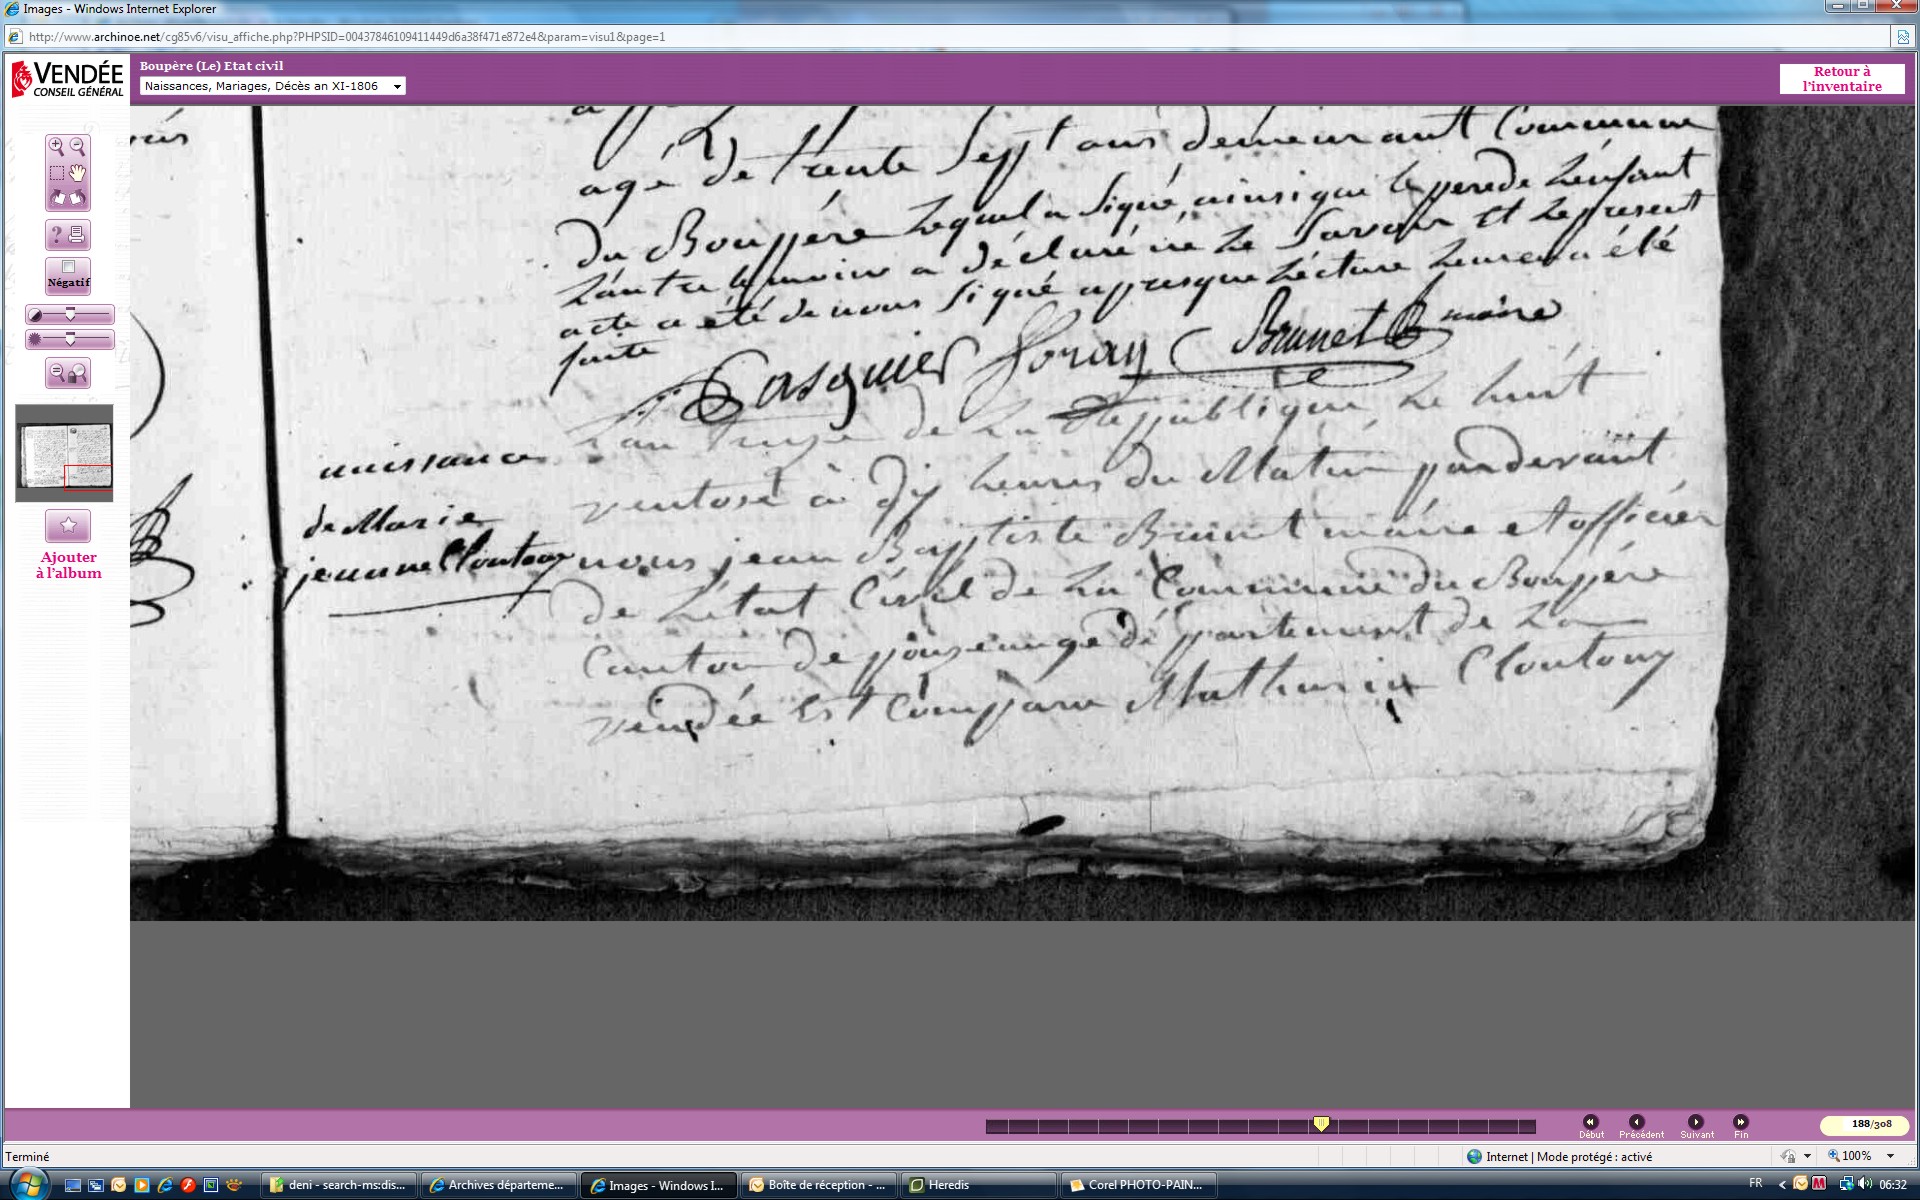 Images - Windows Internet Explorer
http://www.archinoe.net/cg85v6/visu_affiche.php?PHPSID=00437846109411449d6a38f471e872e4&param=visu1&page=1
VENDÉE
CONSEIL GÉNÉRAL
Boupère (Le) Etat civil
Naissances, Mariages, Décès an XI-1806
Retour à
l'inventaire
Négatif
Ajouter
à l'album
agé de trente Sept ans demeurant Commune
du Bouppére Lequel a Signé, ainsi que le pere de L'enfant
L'autre temoin a déclaré ne Le Savoir Et Le present
acte a été de nous Signé apresque Lécture Leur en a été
faite
Pasquier Soray Brunet maire
naissance
de Marie
jeanne Cloutour
L'an Treize de La Republique, Le huit
ventose à dix heures du Matin pardevant
nous jean Baptiste Brunet maire et officier
de L'état Civil de La Commune du Bouppére
Canton de pouzeauge département de La
vendée Est Comparu Mathurin Cloutour
Début
Précédent
Suivant
Fin
188/308
Terminé
Internet | Mode protégé : activé
100%
deni - search-ms:dis...
Archives départeme...
Images - Windows I...
Boîte de réception - ...
Heredis
Corel PHOTO-PAIN...
FR
06:32